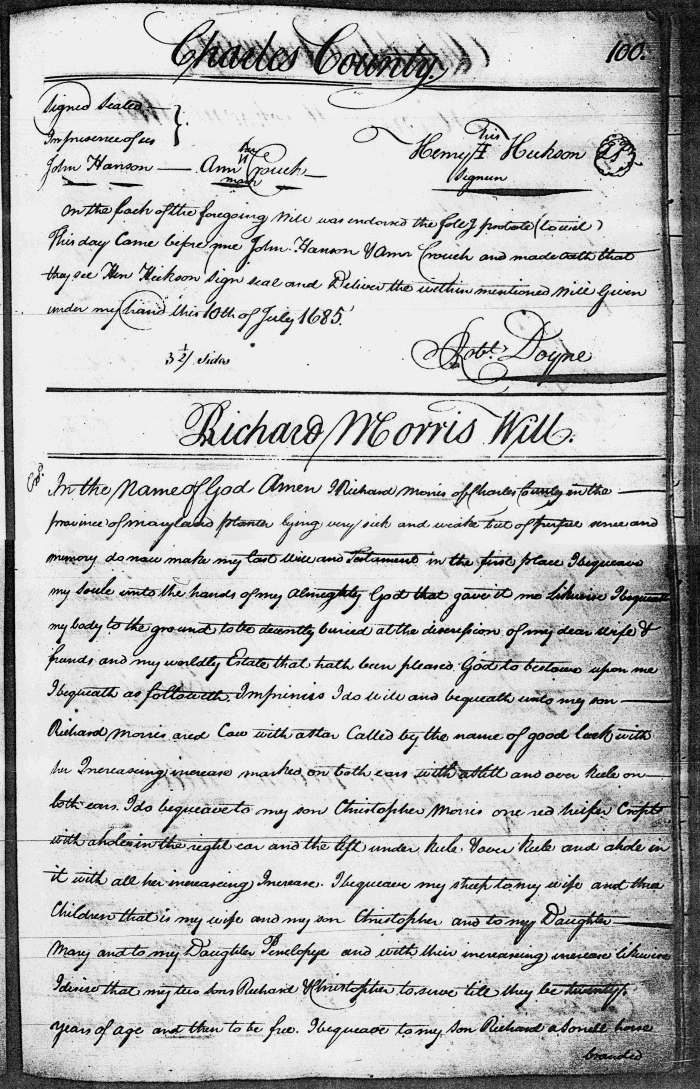 Charles County.
100.
Signed Sealed
In presence of us
John Hanson — Ann Crouch
her
mark
his
Henry H Hickson
signum
On the back of the foregoing Will was endorsed the foll.g probate (to wit)
This day Came before me John Hanson & Ann Crouch and made oath that
they see Hen Hickson sign seal and Deliver the within mentioned Will Given
under my hand this 10th of July 1685.
3 1/2 sides
Robt. Doyne
Richard Morris Will.
In the Name of God Amen I Richard Morris of Charles County in the
province of Maryland planter lying very sick and weake but of perfect sence and
memory do now make my Last Will and Testament in the first place I bequeave
my soule unto the hands of my Almighty God that gave it me Likewise I bequeath
my body to the ground to be decently buried at the discression of my dear wife &
friends and my worldly Estate that hath been pleased God to bestowe upon me
I bequeath as followeth Imprimis I do Will and bequeath unto my son
Richard Morris a red Cow with a star Called by the name of good luck with
her Increasing increase marked on both ears with a slitt and over keele on
both ears. I do bequeave to my son Christopher Morris one red heifer Cropt
with a hole in the right ear and the left under keele & over keele and a hole in
it with all her increasing Increase. I bequeave my sheep to my wife and three
Children that is my wife and my son Christopher and to my Daughter
Mary and to my Daughter Penelopye and with their increasing increase likewise
I desire that my two sons Richard & Christopher to serve till they be twenty
years of age and then to be free. I bequeave to my son Richard a sorrell horse
branded